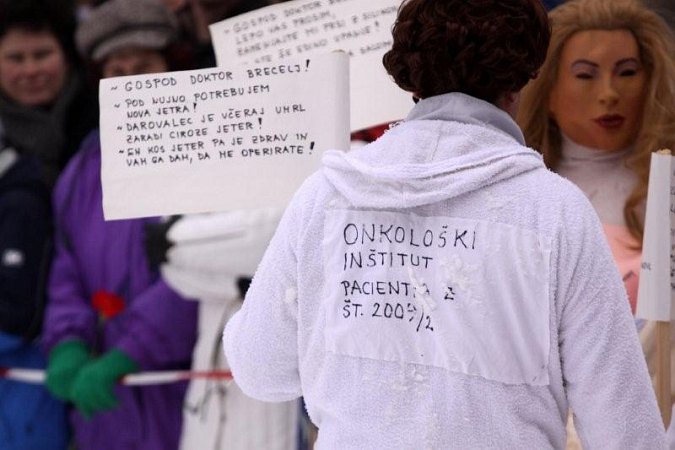 GOSPOD DOKTOR BR
LEPO VAS PROSIM,
ZAMENJAJTE MI PRSI Z SILIKON
ŠE EDINO UPANJE!
~ GOSPOD DOKTOR BRECELJ!
~ POD NUJNO POTREBUJEM
NOVA JETRA!
~ DAROVALEC JE VČERAJ UMRL
ZARADI CIROZE JETER!
~ EN KOS JETER PA JE ZDRAV IN
VAM GA DAM, DA ME OPERIRATE!
ONKOLOŠKI
INŠTITUT
PACIENTKA Z
ŠT. 2005/2